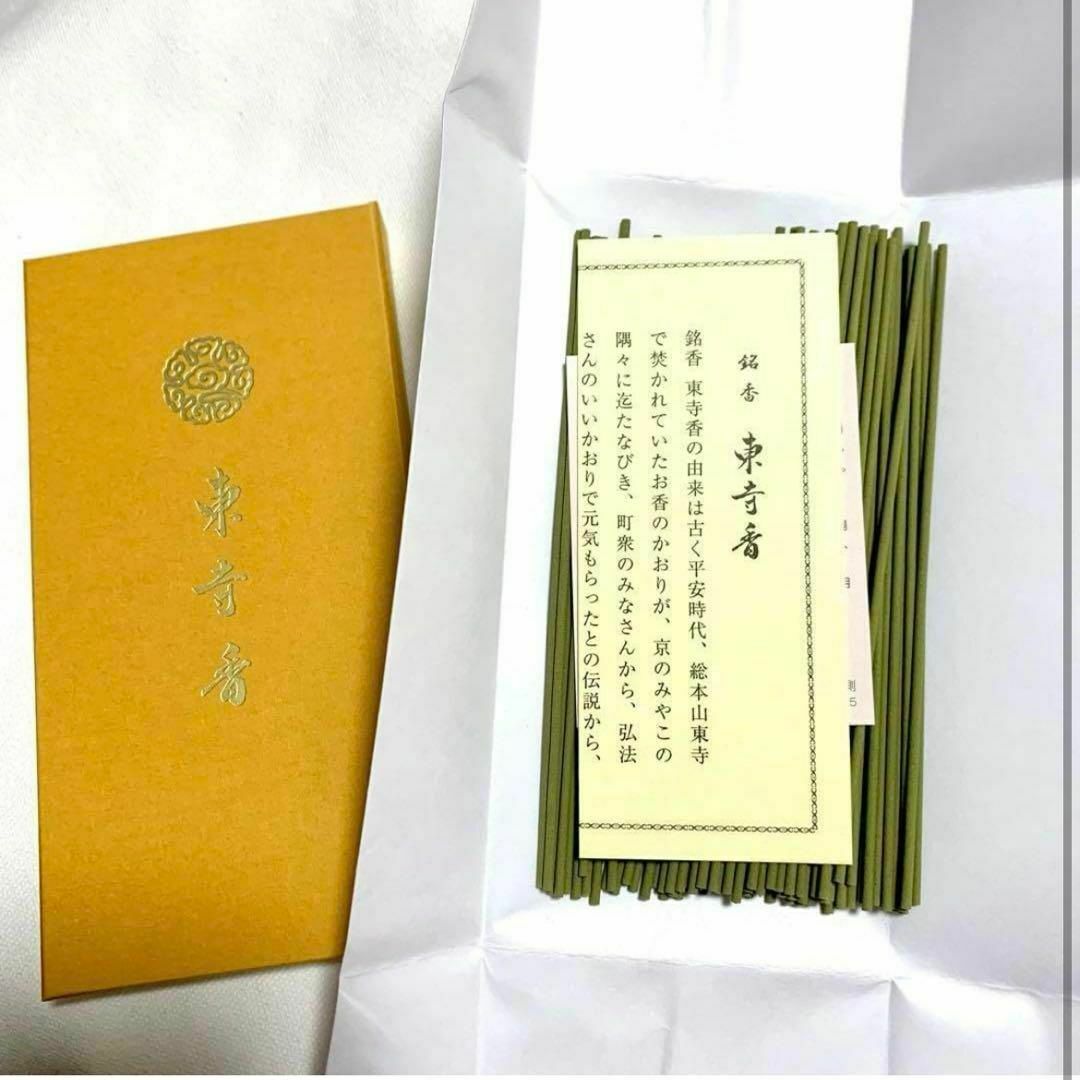 東寺香
銘香 東寺香
銘香 東寺香の由来は古く平安時代、総本山東寺
で焚かれていたお香のかおりが、京のみやこの
隅々に迄たなびき、町衆のみなさんから、弘法
さんのいいかおりで元気もらったとの伝説から、
則
5